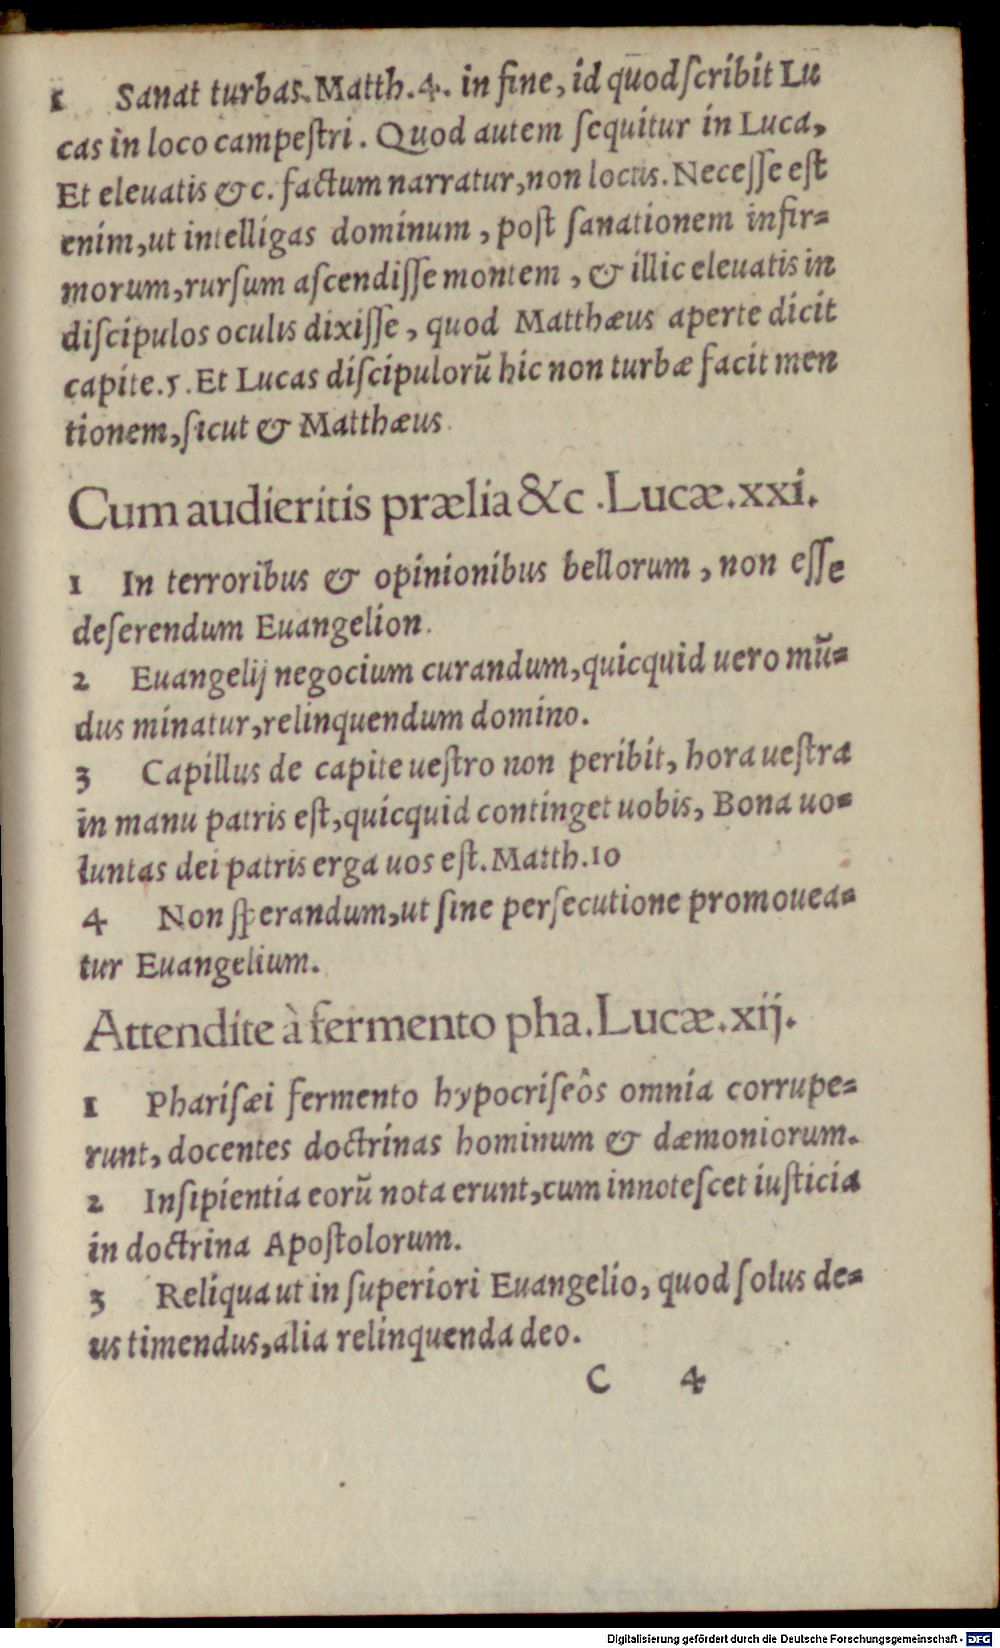 1 Sanat turbas. Matth. 4. in fine, id quod ſcribit Lu
cas in loco campeſtri. Quod autem ſequitur in Luca,
Et eleuatis & c. factum narratur, non locus. Neceſſe eſt
enim, ut intelligas dominum, poſt ſanationem infir=
morum, rurſum aſcendiſſe montem, & illic eleuatis in
diſcipulos oculis dixiſſe, quod Matthæus aperte dicit
capite. 5. Et Lucas diſcipulorũ hic non turbæ facit men
tionem, ſicut & Matthæus.
Cum audieritis prælia &c. Lucæ. xxi.
1 In terroribus & opinionibus bellorum, non eſſe
deſerendum Euangelion.
2 Euangelij negocium curandum, quicquid uero mũ=
dus minatur, relinquendum domino.
3 Capillus de capite ueſtro non peribit, hora ueſtra
in manu patris eſt, quicquid continget uobis, Bona uo=
luntas dei patris erga uos eſt. Matth. 10
4 Non ſperandum, ut ſine perſecutione promouea=
tur Euangelium.
Attendite à fermento pha. Lucæ. xij.
1 Phariſæi fermento hypocriſeôs omnia corrupe=
runt, docentes doctrinas hominum & dæmoniorum.
2 Inſipientia eorũ nota erunt, cum innoteſcet iuſticia
in doctrina Apoſtolorum.
3 Reliqua ut in ſuperiori Euangelio, quod ſolus de=
us timendus, alia relinquenda deo.
C 4
Digitalisierung gefördert durch die Deutsche Forschungsgemeinschaft - DFG